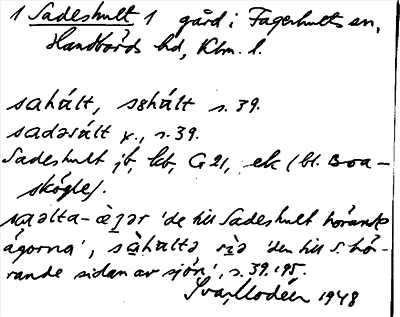 1 Sadeshult 1 gård i Fagerhults sn,
Handbörds hd, Klm. l.
sahált, søhált s. 39.
sadəsált y., s. 39.
Sadeshult jb, kb, G 21, ek (bl. Boa-
skögle).
saəlta-
'de till Sadeshult hörande
ägorna', sàhaltə sìə 'den till S. hö-
rande sidan av sjön', s. 39, 195.
Ivar Modéer 1948